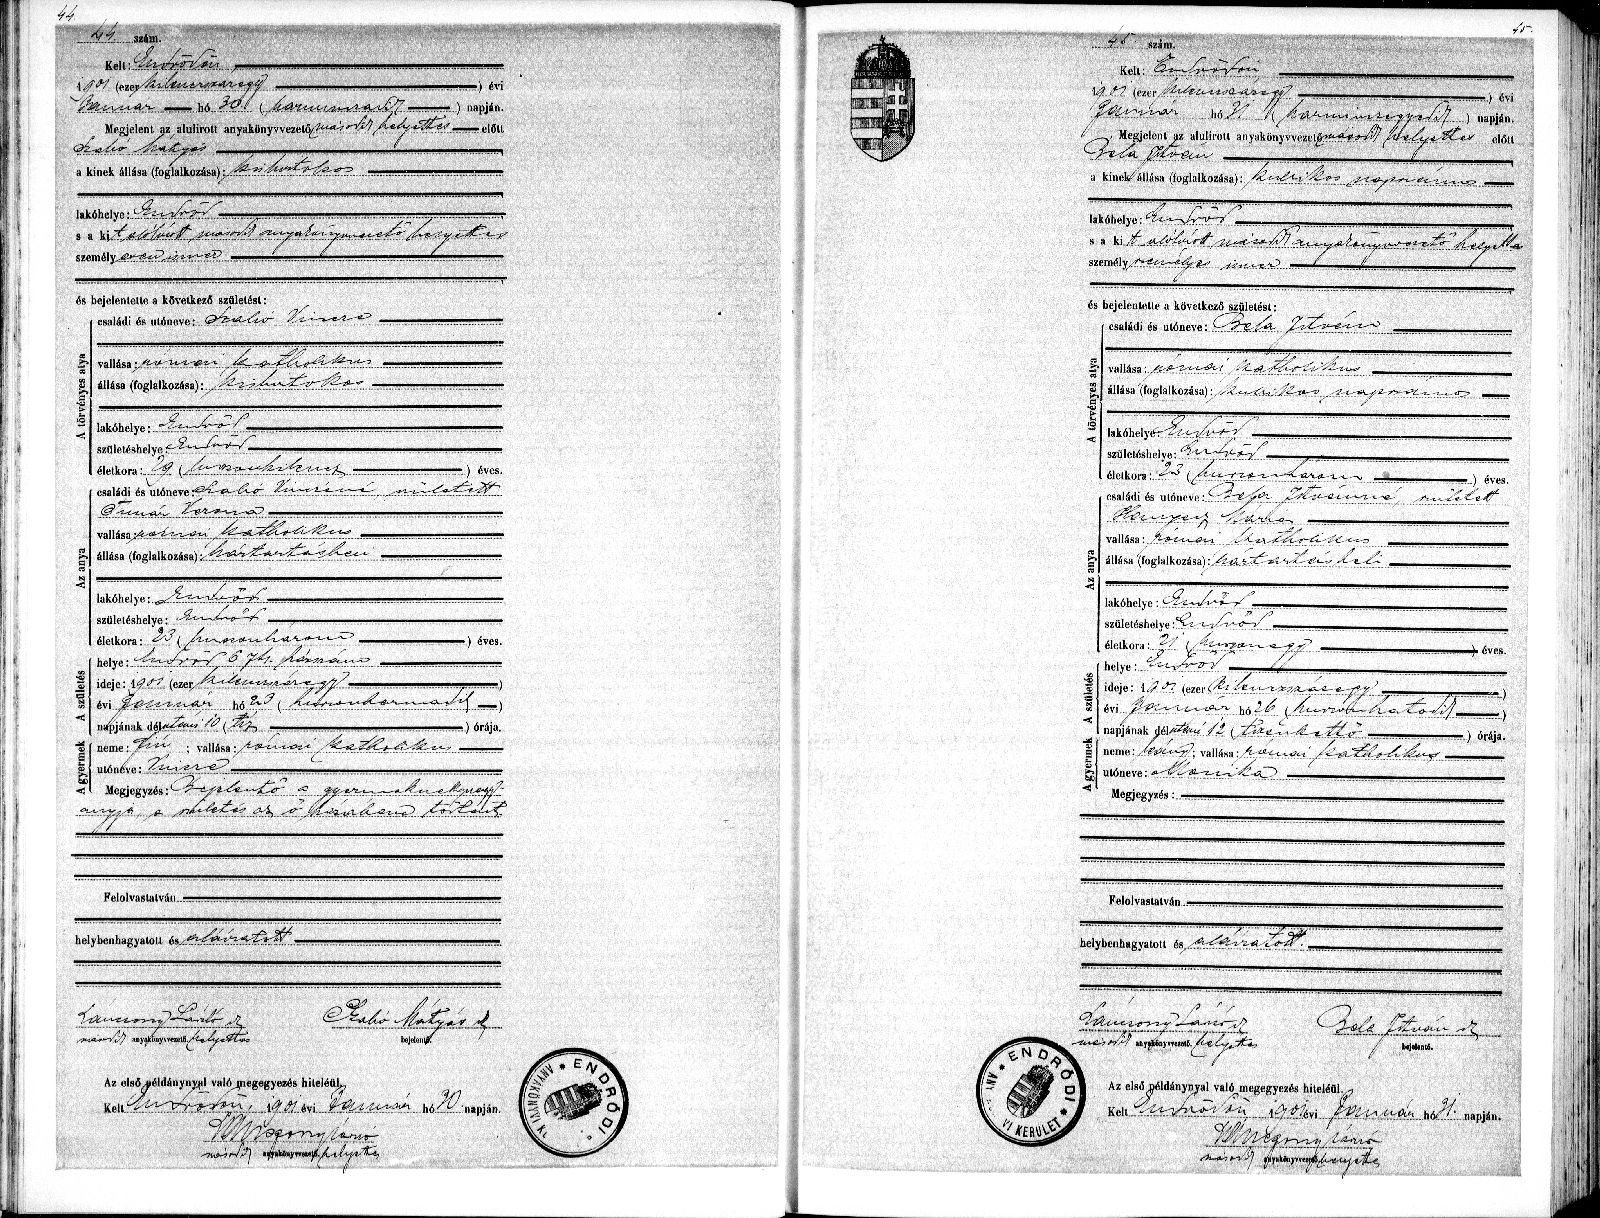 44
44 szám.
Kelt: Endrődön,
1901 (ezer kilenczszázegy) évi
Január hó 30 (harminczadik) napján.
Megjelent az alulirott anyakönyvvezető második helyettes előtt
Szabó Mátyás
a kinek állása (foglalkozása): kisbirtokos
lakóhelye: Endrőd
s a kit alólirott második anyakönyvvezető helyettes
személyesen ismer
és bejelentette a következő születést:
A törvényes atya
családi és utóneve: Szabó Vincze
vallása: római katholikus
állása (foglalkozása): kisbirtokos
lakóhelye: Endrőd
születéshelye: Endrőd
életkora: 29 (huszonkilencz) éves.
Az anya
családi és utóneve: Szabó Vinczéné, született
Timár Verona
vallása: római katholikus
állása (foglalkozása): háztartásbeli
lakóhelye: Endrőd
születéshelye: Endrőd
életkora: 23 (huszonhárom) éves.
A születés
helye: Endrőd, 6
ideje: 1901 (ezer kilenczszázegy)
évi Január hó 23 (huszonharmadik)
napjának délutáni 10 (tíz) órája.
A gyermek
neme: fiú; vallása: római katholikus
utóneve: Vincze
Megjegyzés: Bejelentő a gyermeknek nagy-
atyja, a születés az ő házában történt
Felolvastatván
helybenhagyatott és aláiratott
László Szabó Mátyás
második anyakönyvvezető helyettes bejelentő.
Az első példánynyal való megegyezés hiteléül.
Kelt Endrődön, 1901 évi Január hó 30 napján.
László
második anyakönyvvezető helyettes
ENDRŐDI
ANYAKÖNYVI
45.
45 szám.
Kelt: Endrődön
1901 (ezer kilenczszázegy) évi
Január hó 31 (harminczegyedik) napján.
Megjelent az alulirott anyakönyvvezető második helyettes előtt
Bela István
a kinek állása (foglalkozása): kubikos napszámos
lakóhelye: Endrőd
s a kit alólirott második anyakönyvvezető helyettes
személyes ismer
és bejelentette a következő születést:
A törvényes atya
családi és utóneve: Bela István
vallása: római katholikus
állása (foglalkozása): kubikos napszámos
lakóhelye: Endrőd
születéshelye: Endrőd
életkora: 23 (huszonhárom) éves.
Az anya
családi és utóneve: Bela Istvánné, született
Mária
vallása: római katholikus
állása (foglalkozása): háztartásbeli
lakóhelye: Endrőd
születéshelye: Endrőd
életkora: 21 (huszonegy) éves.
A születés
helye: Endrőd
ideje: 1901 (ezer kilenczszázegy)
évi Január hó 26 (huszonhatodik)
napjának délutáni 12 (tizenkettő) órája.
A gyermek
neme: leány; vallása: római katholikus
utóneve: Monika
Megjegyzés:
Felolvastatván
helybenhagyatott és aláiratott.
László Bela István
második anyakönyvvezető helyettes bejelentő.
Az első példánynyal való megegyezés hiteléül.
Kelt Endrődön 1901 évi Január hó 31. napján.
László
második anyakönyvvezető helyettes
ENDRŐDI
VI KERÜLET